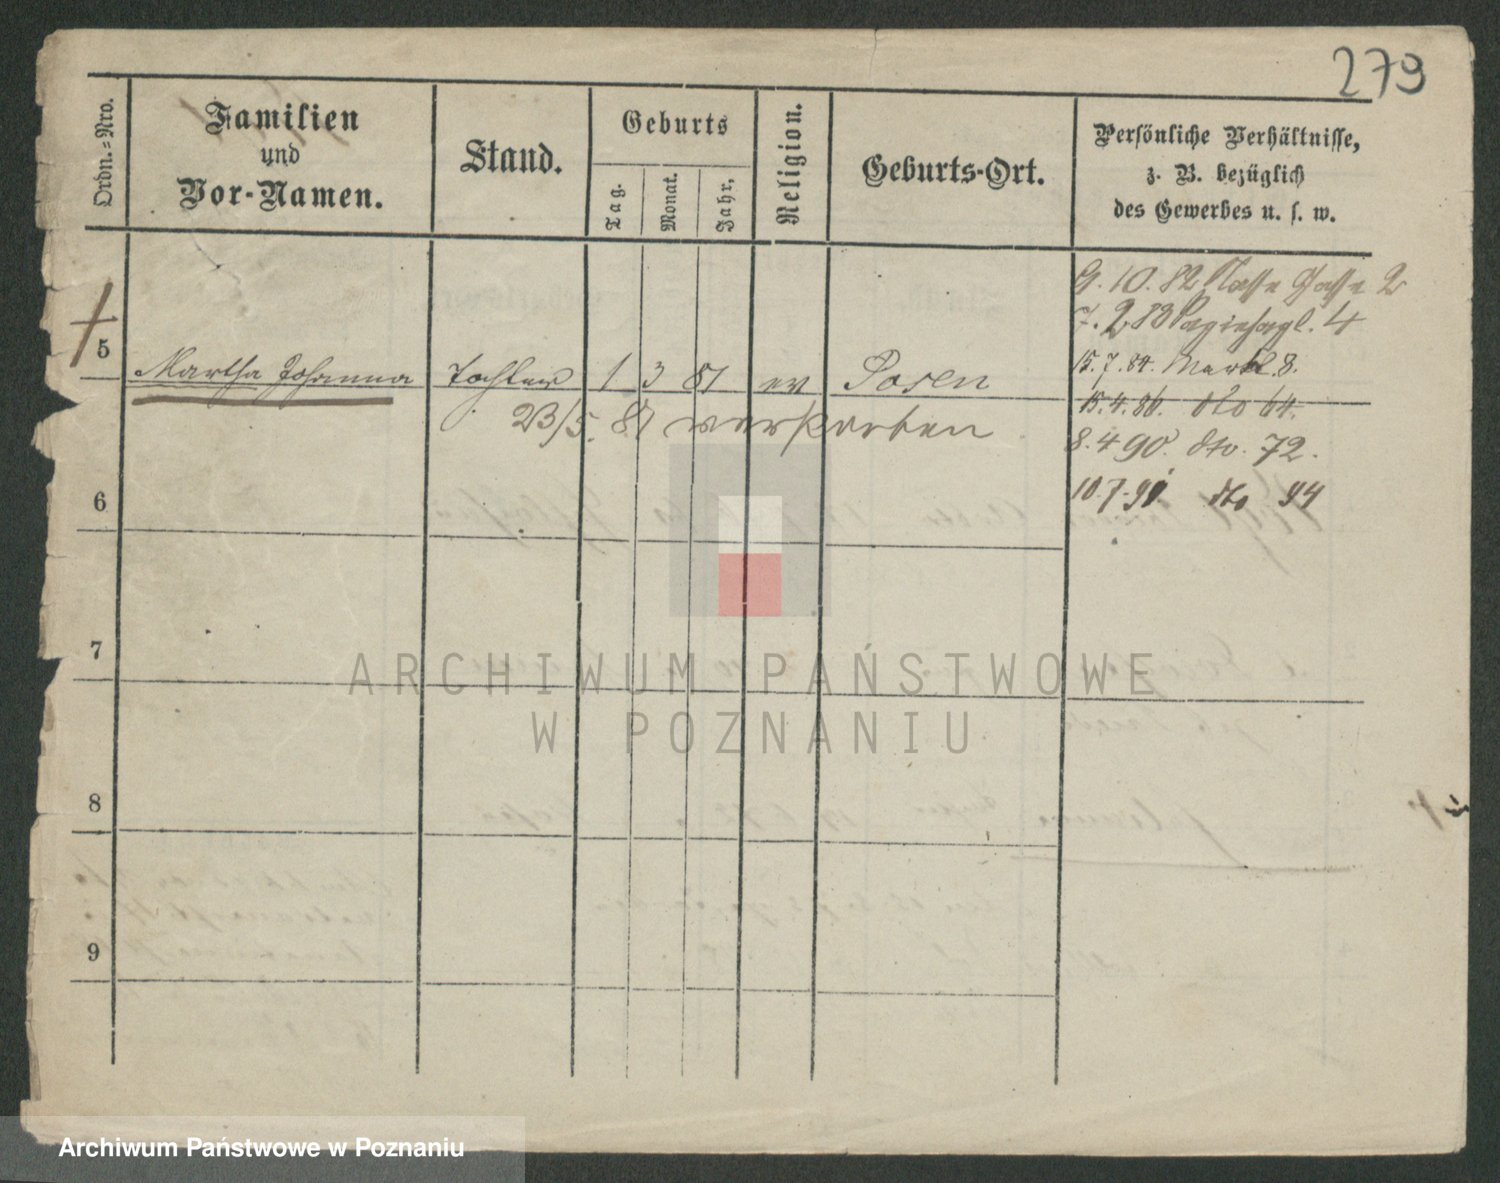 279
Ordn.-Nro.
Familien
und
Vor-Namen.
Stand.
Geburts
Tag.
Monat.
Jahr,
Religion.
Geburts-Ort.
Persönliche Verhältnisse,
z. B. bezüglich
des Gewerbes u. s. w.
9. 10. 82 Gasse 2
7. 2. 83 4
5 Martha Johanna Tochter 1 3 81 ev Posen
15. 7. 84. Markt 8.
23/5. 81 verstorben
15. 4. 86. dto 64.
8. 4 90. dto. 72.
6
10. 7. 91 dto 94
7
8
9
ARCHIWUM PAŃSTWOWE
W POZNANIU
Archiwum Państwowe w Poznaniu